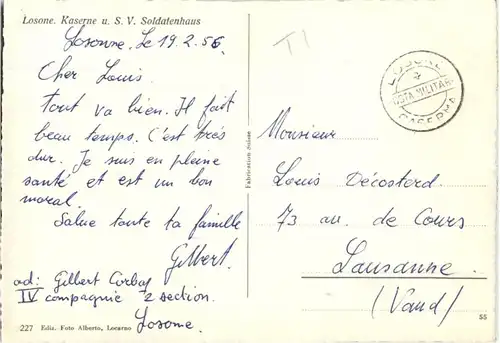 Losone. Kaserne u. S. V. Soldatenhaus
Losonne. Le 19.2.56.
Cher Louis.
Tout va bien. Il fait
beau temps. C'est très
dur. Je suis en pleine
santé et est un bon
moral.
Salue toute ta famille
Gilbert.
ad: Gilbert Corbaz
IV compagnie 2 section.
Losone.
227 Ediz. Foto Alberto, Locarno
Fabrication Suisse
T1
LOSONE
POSTA MILITARE
CASERMA
Monsieur
Louis Décosterd.
73 av. de Cours
Lausanne.
(Vaud)
55